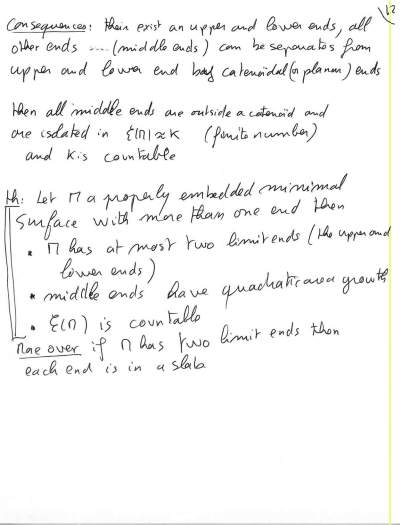 12
Consequences: there exist an upper and lower ends, all
other ends .... (middle ends) can be separates from
upper and lower end by catenoidal (or planar) ends
then all middle ends are outside a catenoid and
are isolated in ξ(M) ≈ K (finite number)
and K is countable
th: Let M a properly embedded minimal
surface with more than one end then
• M has at most two limit ends (the upper and
lower ends)
• middle ends have quadratic area growth
• ξ(M) is countable
More over if M has two limit ends then
each end is in a slab